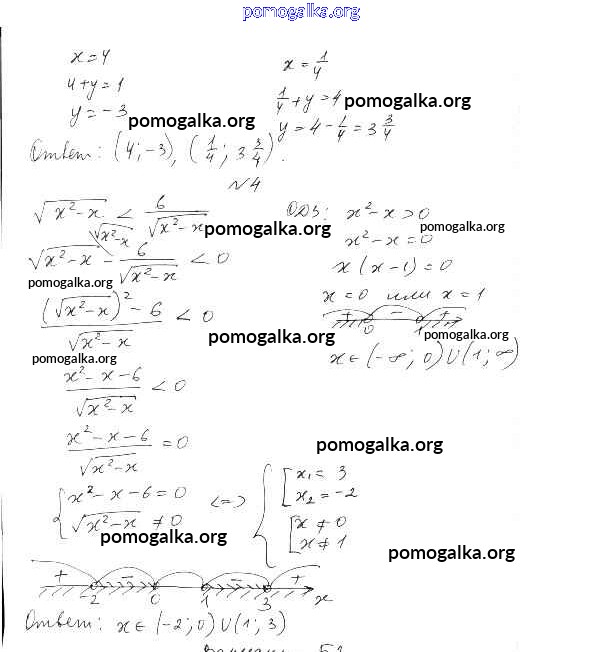 pomogalka.org
x = 4
4 + y = 1
y = -3
x = 1/4
1/4 + y = 4
y = 4 - 1/4 = 3 3/4
pomogalka.org
pomogalka.org
Ответ: (4; -3), (1/4; 3 3/4).
№4
√(x² - x) < 6/√(x² - x)
ОДЗ: x² - x > 0
pomogalka.org
pomogalka.org
√(x² - x) - 6/√(x² - x) < 0
√(x² - x)
x² - x = 0
x(x - 1) = 0
pomogalka.org
((√(x² - x))² - 6)/√(x² - x) < 0
x = 0 или x = 1
+ - +
0 1
pomogalka.org
x ∈ (-∞; 0) ∪ (1; ∞)
pomogalka.org
(x² - x - 6)/√(x² - x) < 0
(x² - x - 6)/√(x² - x) = 0
pomogalka.org
{ x² - x - 6 = 0
√(x² - x) ≠ 0
<=>
{ [ x₁ = 3
x₂ = -2
[ x ≠ 0
x ≠ 1
pomogalka.org
pomogalka.org
+ - - +
-2 0 1 3 x
Ответ: x ∈ (-2; 0) ∪ (1; 3)